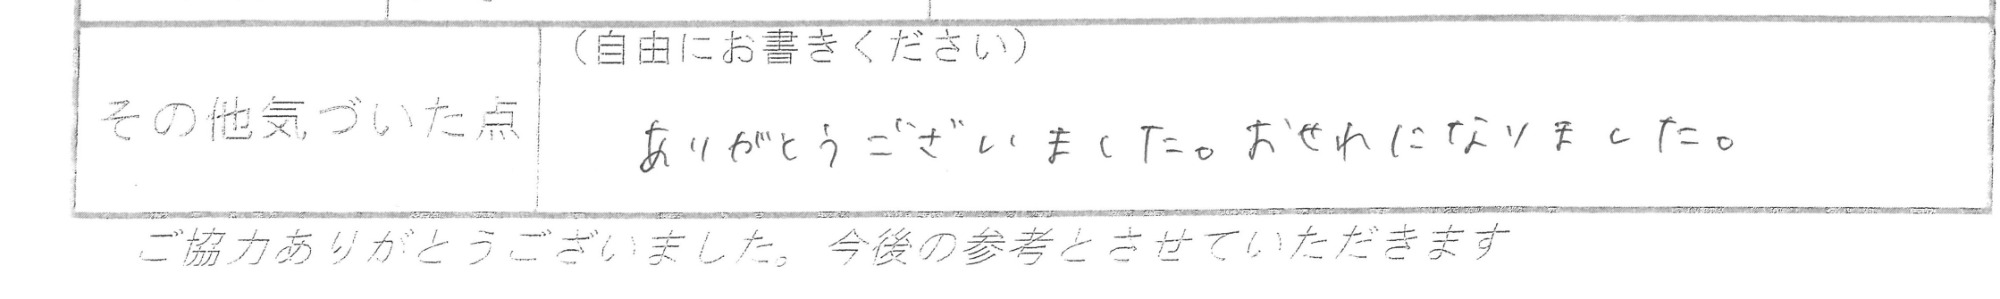 （自由にお書きください）
その他気づいた点
ありがとうございました。おせわになりました。
ご協力ありがとうございました。今後の参考とさせていただきます